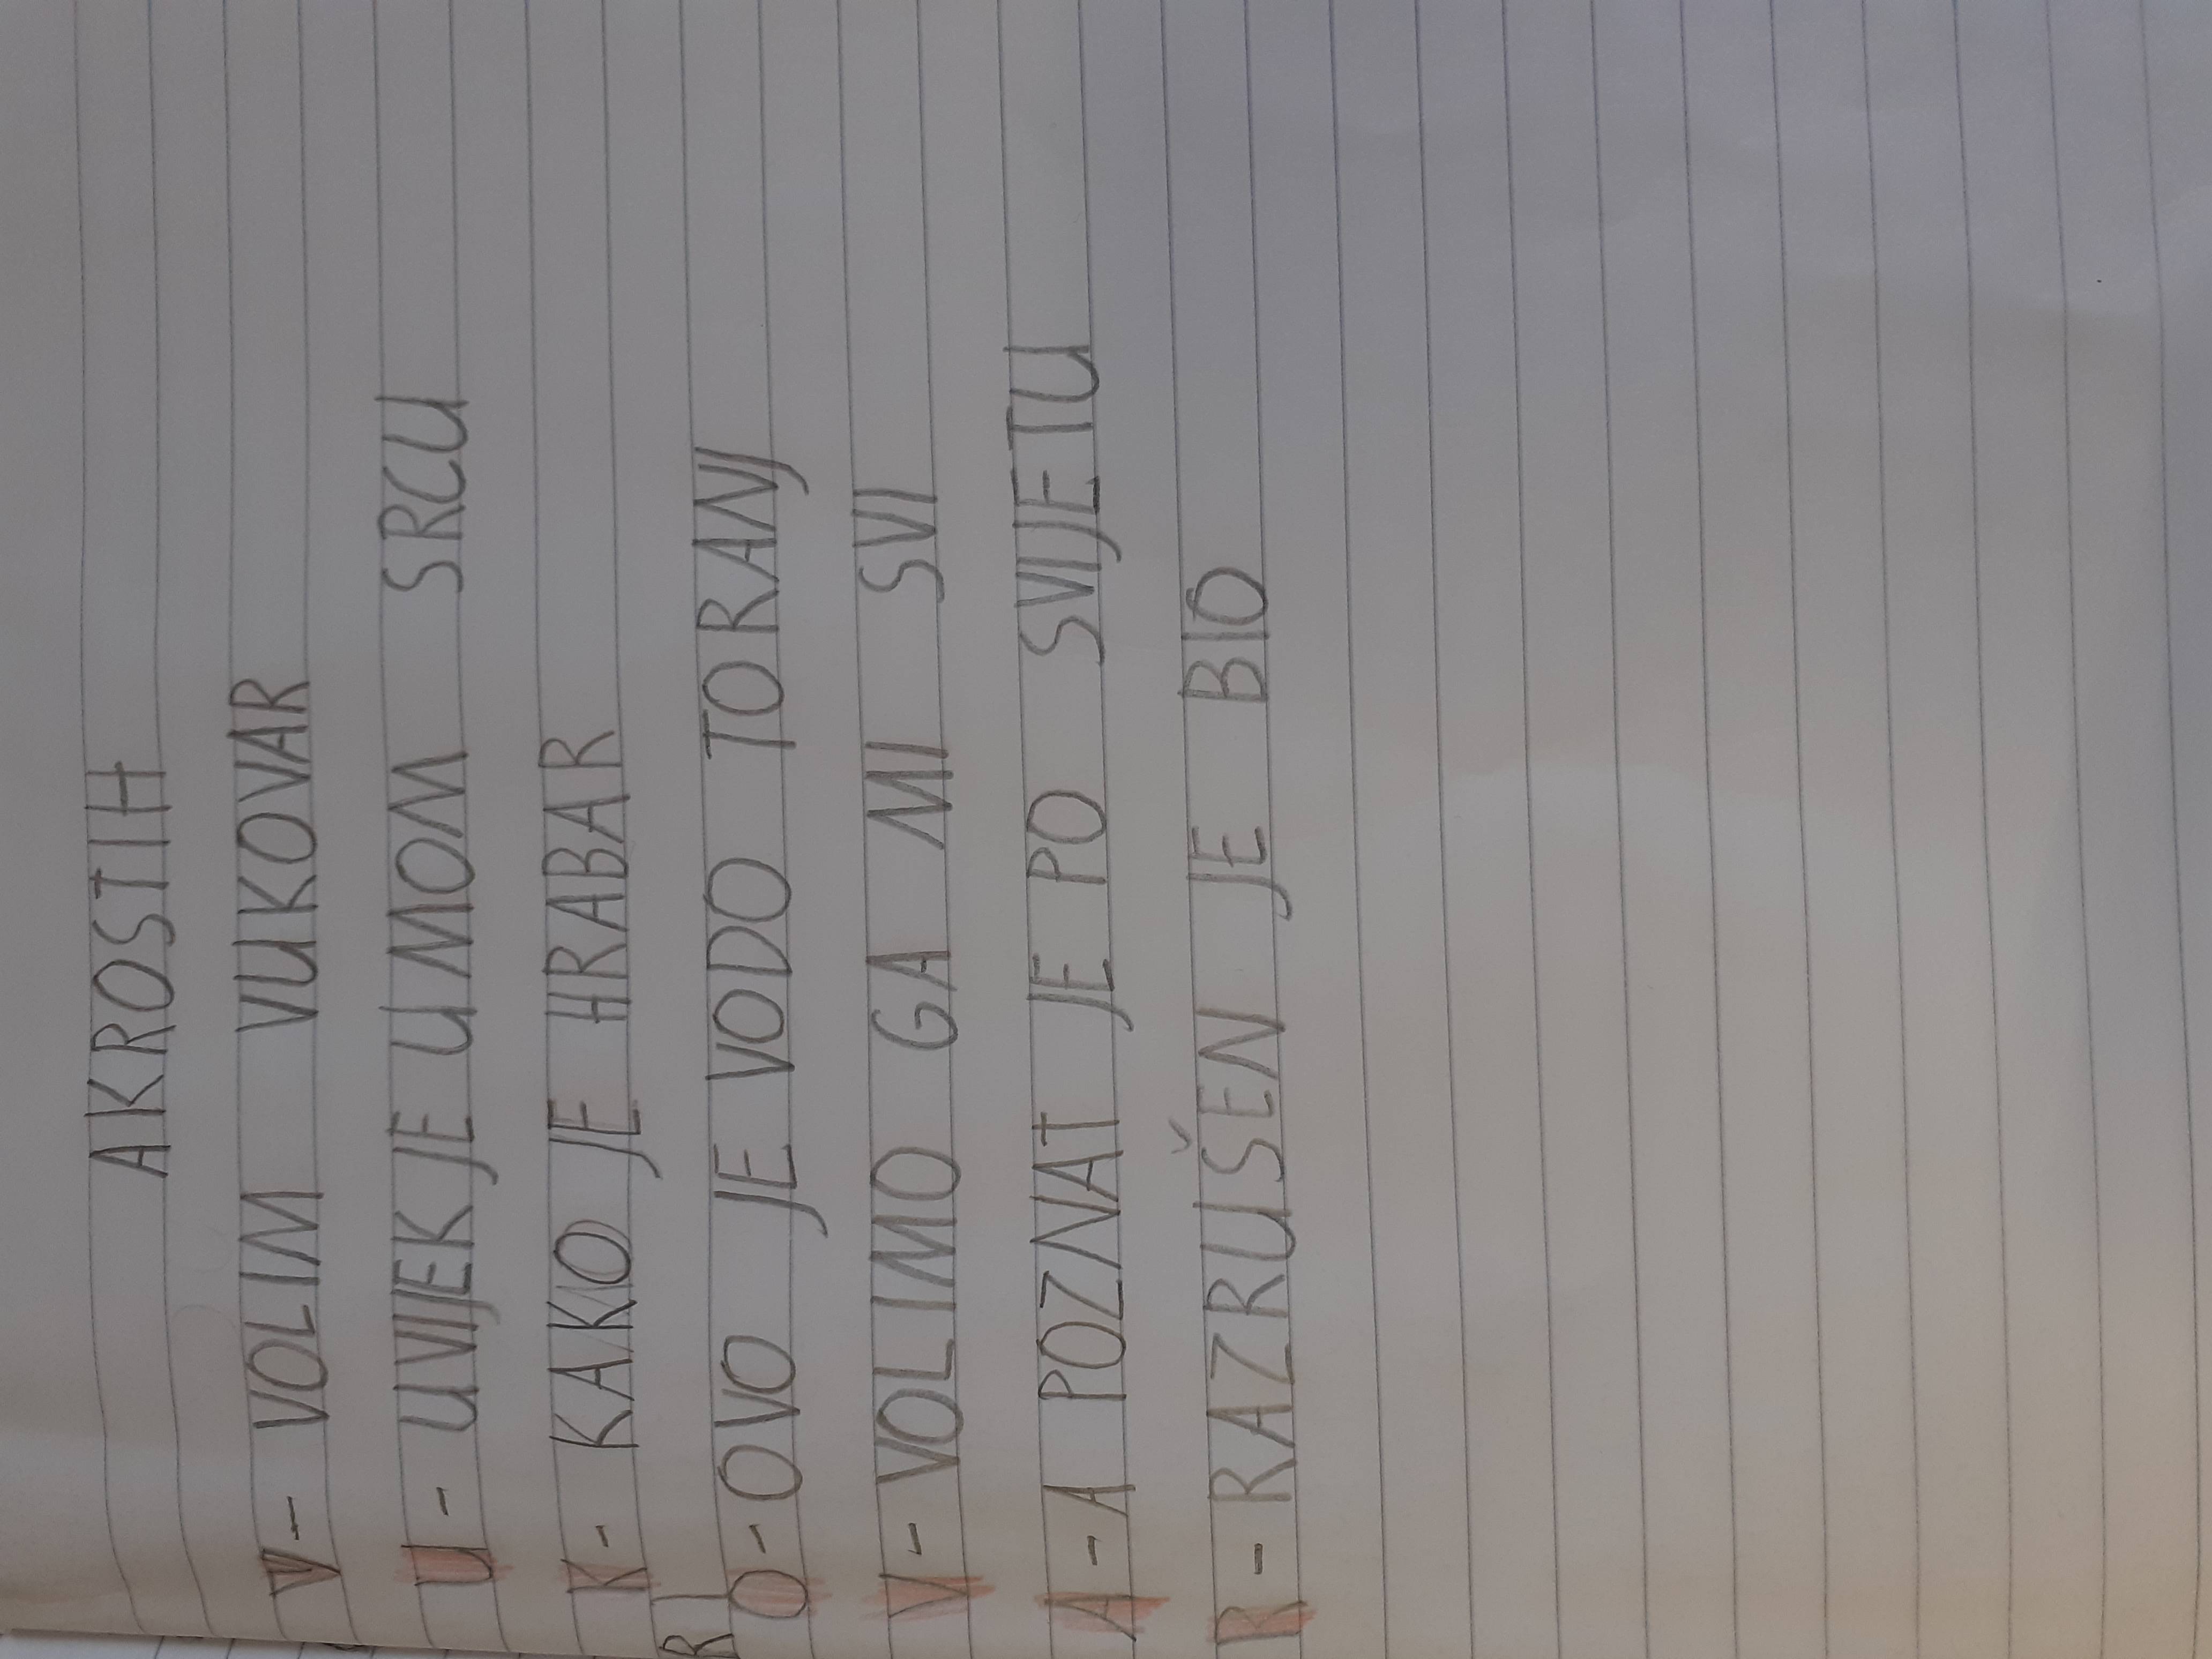 AKROSTIH
V - VOLIM VUKOVAR
U - UVIJEK JE U MOM SRCU
K - KAKO JE HRABAR
O - OVO JE VODO TORANJ
V - VOLIMO GA MI SVI
A - A POZNAT JE PO SVIJETU
R - RAZRUŠEN JE BIO